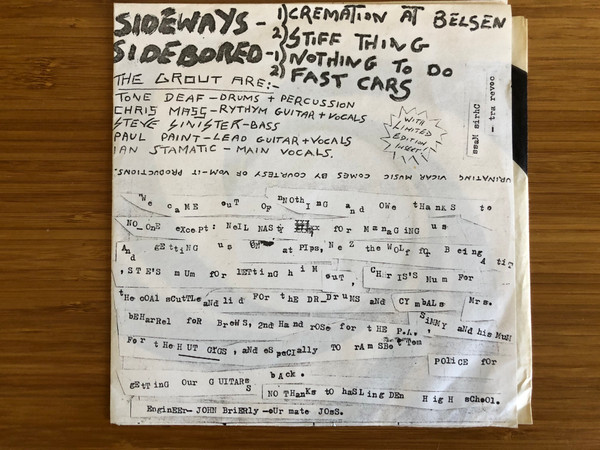 SIDEWAYS - 1) CREMATION AT BELSEN
2) STIFF THING
SIDEBORED - 1) NOTHING TO DO
2) FAST CARS
THE GROUT ARE:-
TONE DEAF - DRUMS + PERCUSSION
CHRIS MASS - RYTHYM GUITAR + VOCALS
STEVE SINISTER - BASS
PAUL PAINT - LEAD GUITAR + VOCALS
IAN STAMATIC - MAIN VOCALS.
WITH
LIMITED
EDITION
INSERT
Chris Mass
- tra revoc
URINATING VICAR MUSIC COMES BY COURTESY OF VOM-IT PRODUCTIONS.
"We cAME oUT OF nOTh ING and OWe tHankS to
NO_OnE eXcePt: NeiL NASty for MaNaGiNG us
And gEttiNG us at PIps, NeZ the WOLf fOr Being A tiT
, STE'S mUm for lETtinG hiM ouT , CHrIS'S Mum For
tHe cOAL sCutTLe aNd lid FOr tHE DR_DrUMS aNd CYmbALs Mrs.
BEHArreL foR BreWS, 2nd Hand rOSe for tHE P.A. , SiNNY aNd his MuM
For tHe HUT GYGS , aNd eSpeCially TO rAmSBottom
POLiCE fOr
gEtTinG OUr GUITARs bAck.
NO THanKs tO haSLingDEn HigH sChOol.
EnginEEr- JOHN BriErly -oUr mate JOmS.